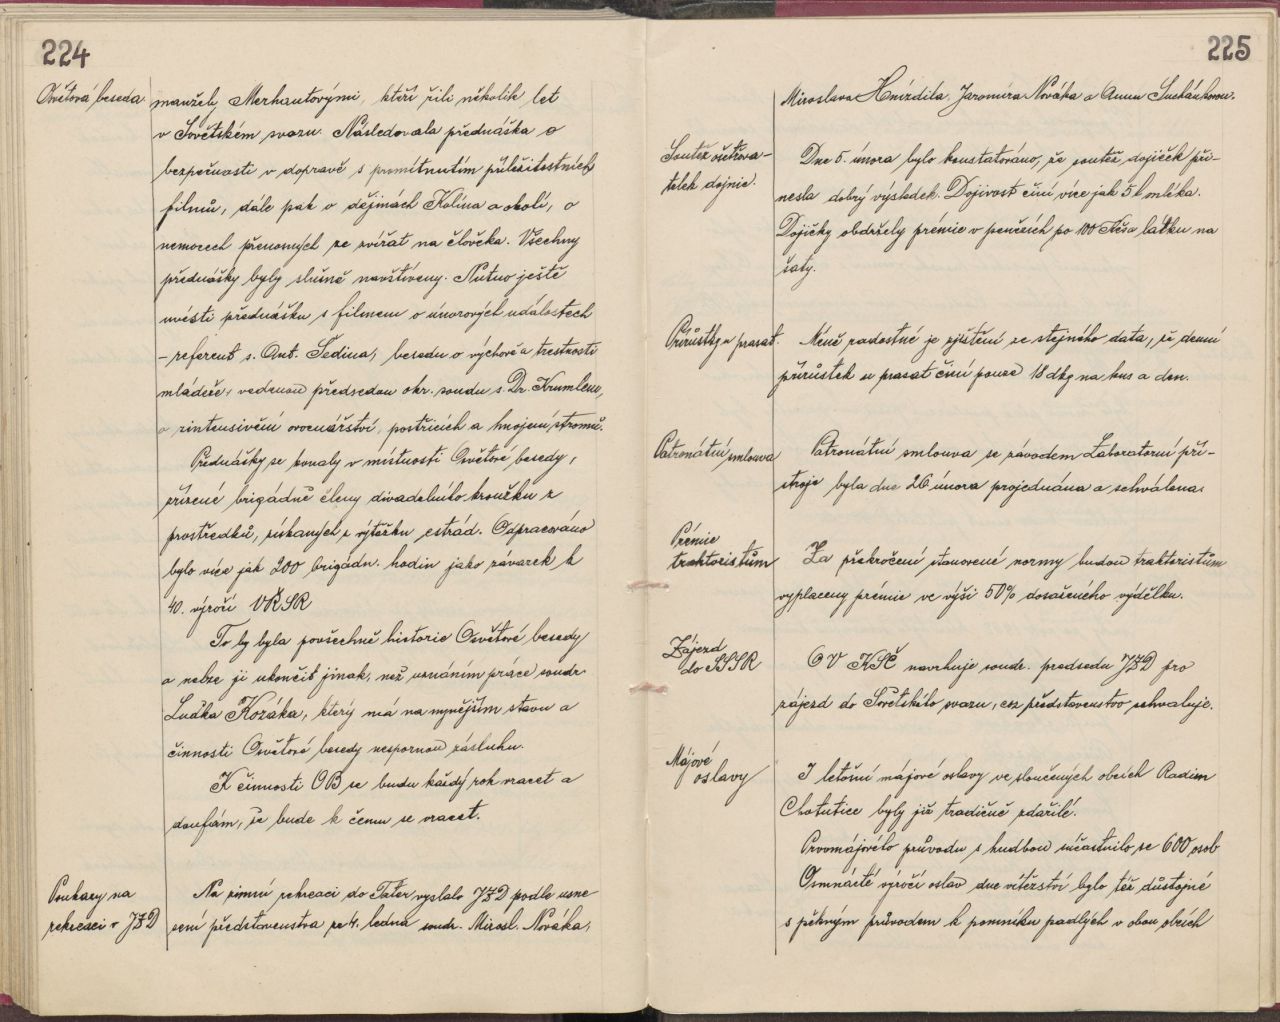 224
Osvětová beseda.
manžely Merhautovými, kteří žili několik let
v Sovětském svazu. Následovala přednáška o
bezpečnosti v dopravě s promítnutím příležitostních
filmů, dále pak o dějinách Kolína a okolí, o
nemocech přenosných ze zvířat na člověka. Všechny
přednášky byly slušně navštíveny. Nutno ještě
uvésti přednášku s filmem o únorových událostech
– referent s. Ant. Šedina, besedu o výchově a trestnosti
mládeže, vedenou předsedou okr. soudu s. Dr. Krumlem,
o zintensivnění ovocnářství, postřicích a hnojení stromů.
Přednášky se konaly v místnosti Osvětové besedy,
zřízené brigádně členy divadelního kroužku z
prostředků, získaných z výtěžku estrád. Odpracováno
bylo více jak 200 brigádn. hodin jako závazek k
40. výročí VŘSR
To by byla povšechně historie Osvětové besedy
a nelze ji ukončit jinak, než uznáním práce soudr.
Luďka Kozáka, který má na nynějším stavu a
činnosti Osvětové besedy nespornou zásluhu.
K činnosti OB se budu každý rok vracet a
doufám, že bude k čemu se vracet.
Poukazy na
rekreaci v JZD
Na zimní rekreaci do Tater vyslalo JZD podle usne
sení představenstva ze 4. ledna soudr. Mirosl. Nováka,
225
Miroslava Hnízdila, Jaromíra Nováka a Annu Suchánkovu.
Soutěž ošetřova-
telek dojnic.
Dne 5. února bylo konstatováno, že soutěž dojiček při-
nesla dobrý výsledek. Dojivost činí více jak 5 l mléka.
Dojičky obdržely prémie v penězích po 100 Kčs a látku na
šaty.
Přírůstky u prasat.
Méně radostné je zjištění ze stejného data, že denní
přírůstek u prasat činí pouze 18 dkg na kus a den.
Patronátní smlouva
Patronátní smlouva se závodem Laboratorní pří-
stroje byla dne 26 února projednána a schválena.
Prémie
traktoristům
Za překročení stanovené normy budou traktoristům
vyplaceny prémie ve výši 50% dosaženého výdělku.
Zájezd
do SSSR
OV KSČ navrhuje soudr. předsedu JZD pro
zájezd do Sovětského svazu, což představenstvo schvaluje.
Májové
oslavy
I letošní májové oslavy ve sloučených obcích Radim
Chotutice byly již tradičně zdařilé.
Prvomájového průvodu s hudbou súčastnilo se 600 osob
Osmnácté výročí oslav dne vítězství bylo též důstojné
s pěkným průvodem k pomníku padlých v obou obcích